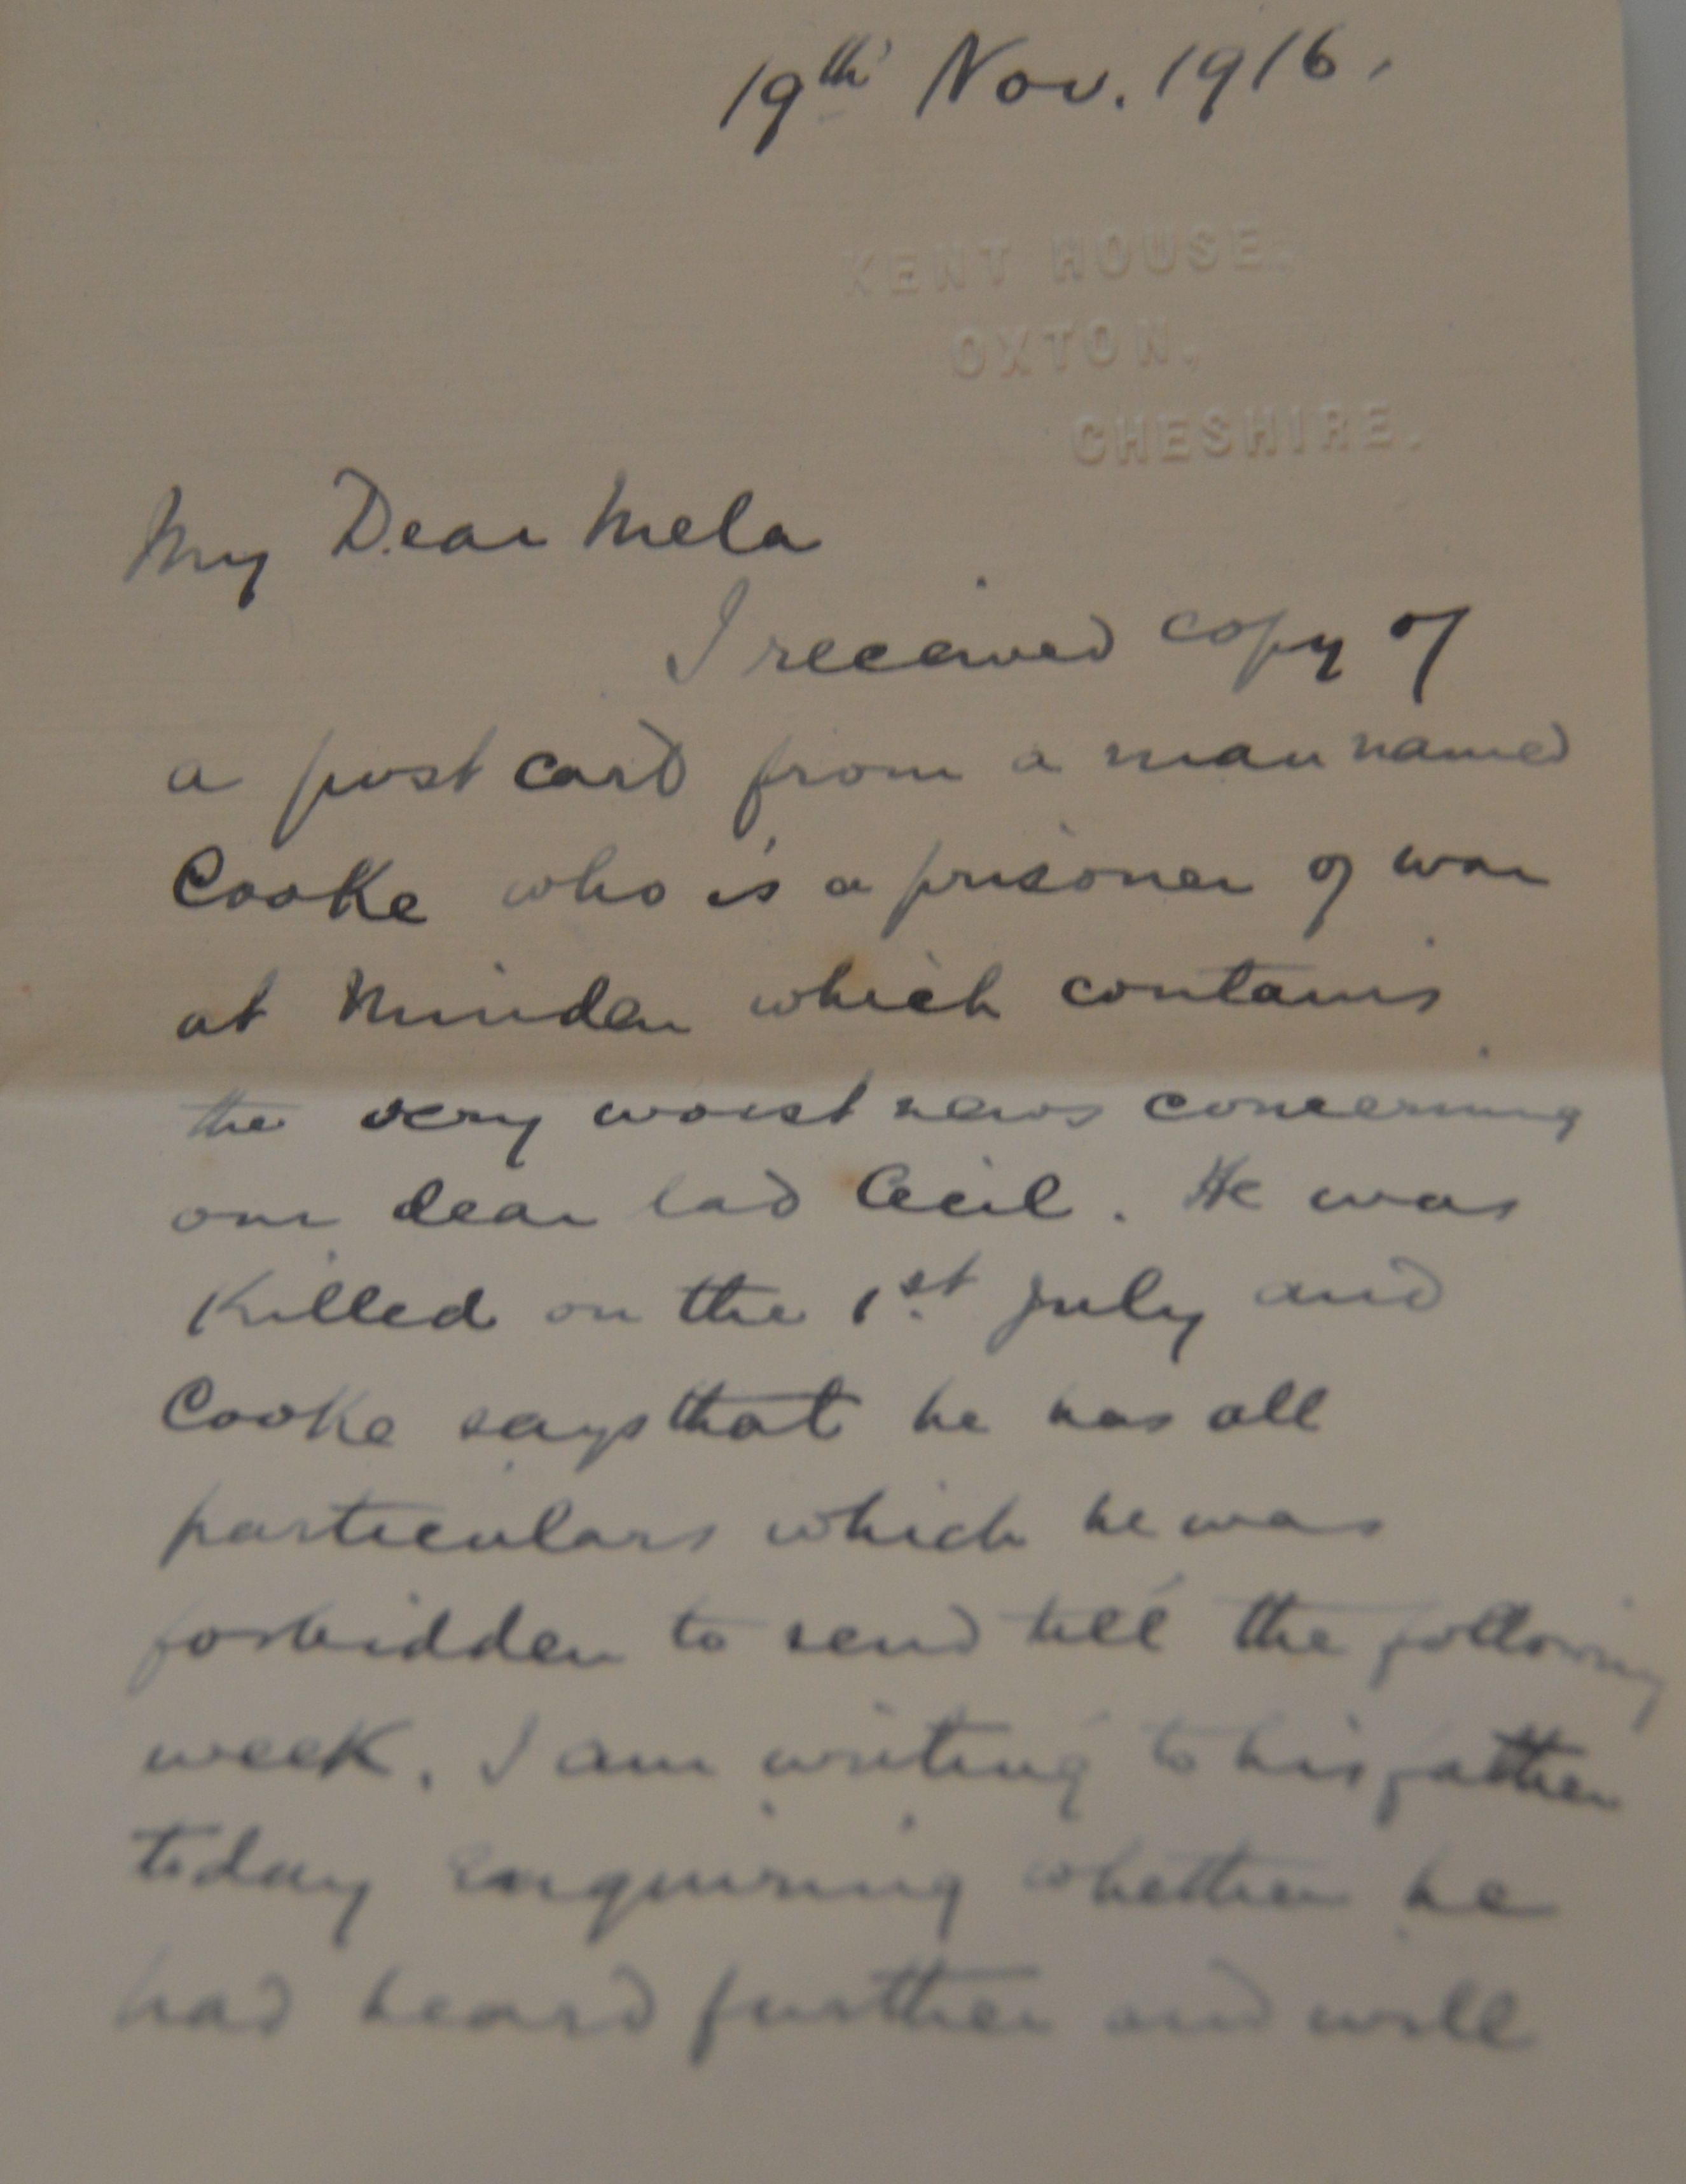 19th Nov. 1916.
KENT HOUSE,
OXTON,
CHESHIRE.
My Dear Mela
I received copy of
a post card from a man named
Cooke who is a prisoner of war
at Minden which contains
the very worst news concerning
our dear lad Cecil. He was
Killed on the 1st July and
Cooke says that he has all
particulars which he was
forbidden to send till the following
week. I am writing to his father
today enquiring whether he
had heard further and will